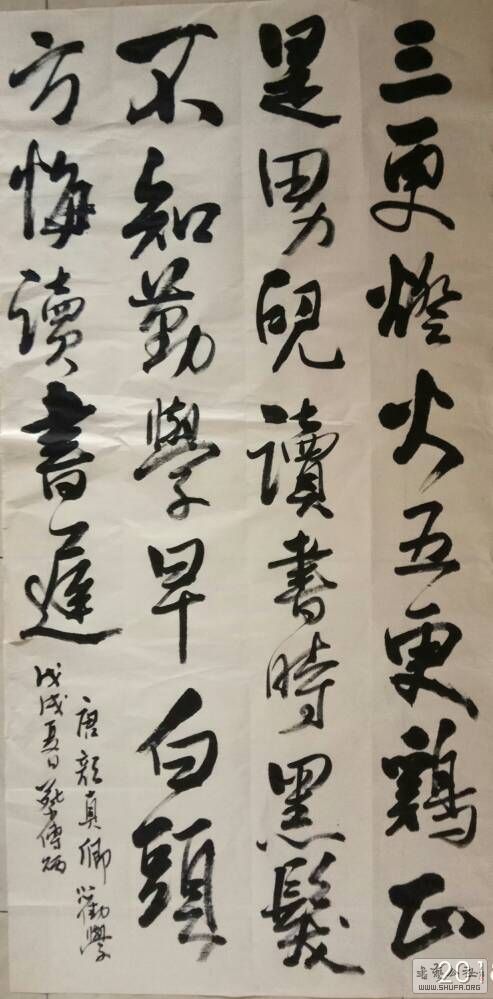 三更燈火五更鷄正
是男兒讀書時黑髮
不知勤學早白頭
方悔讀書遲
唐顏真卿勸學
戊戌夏日
WWW.SHUFA.ORG